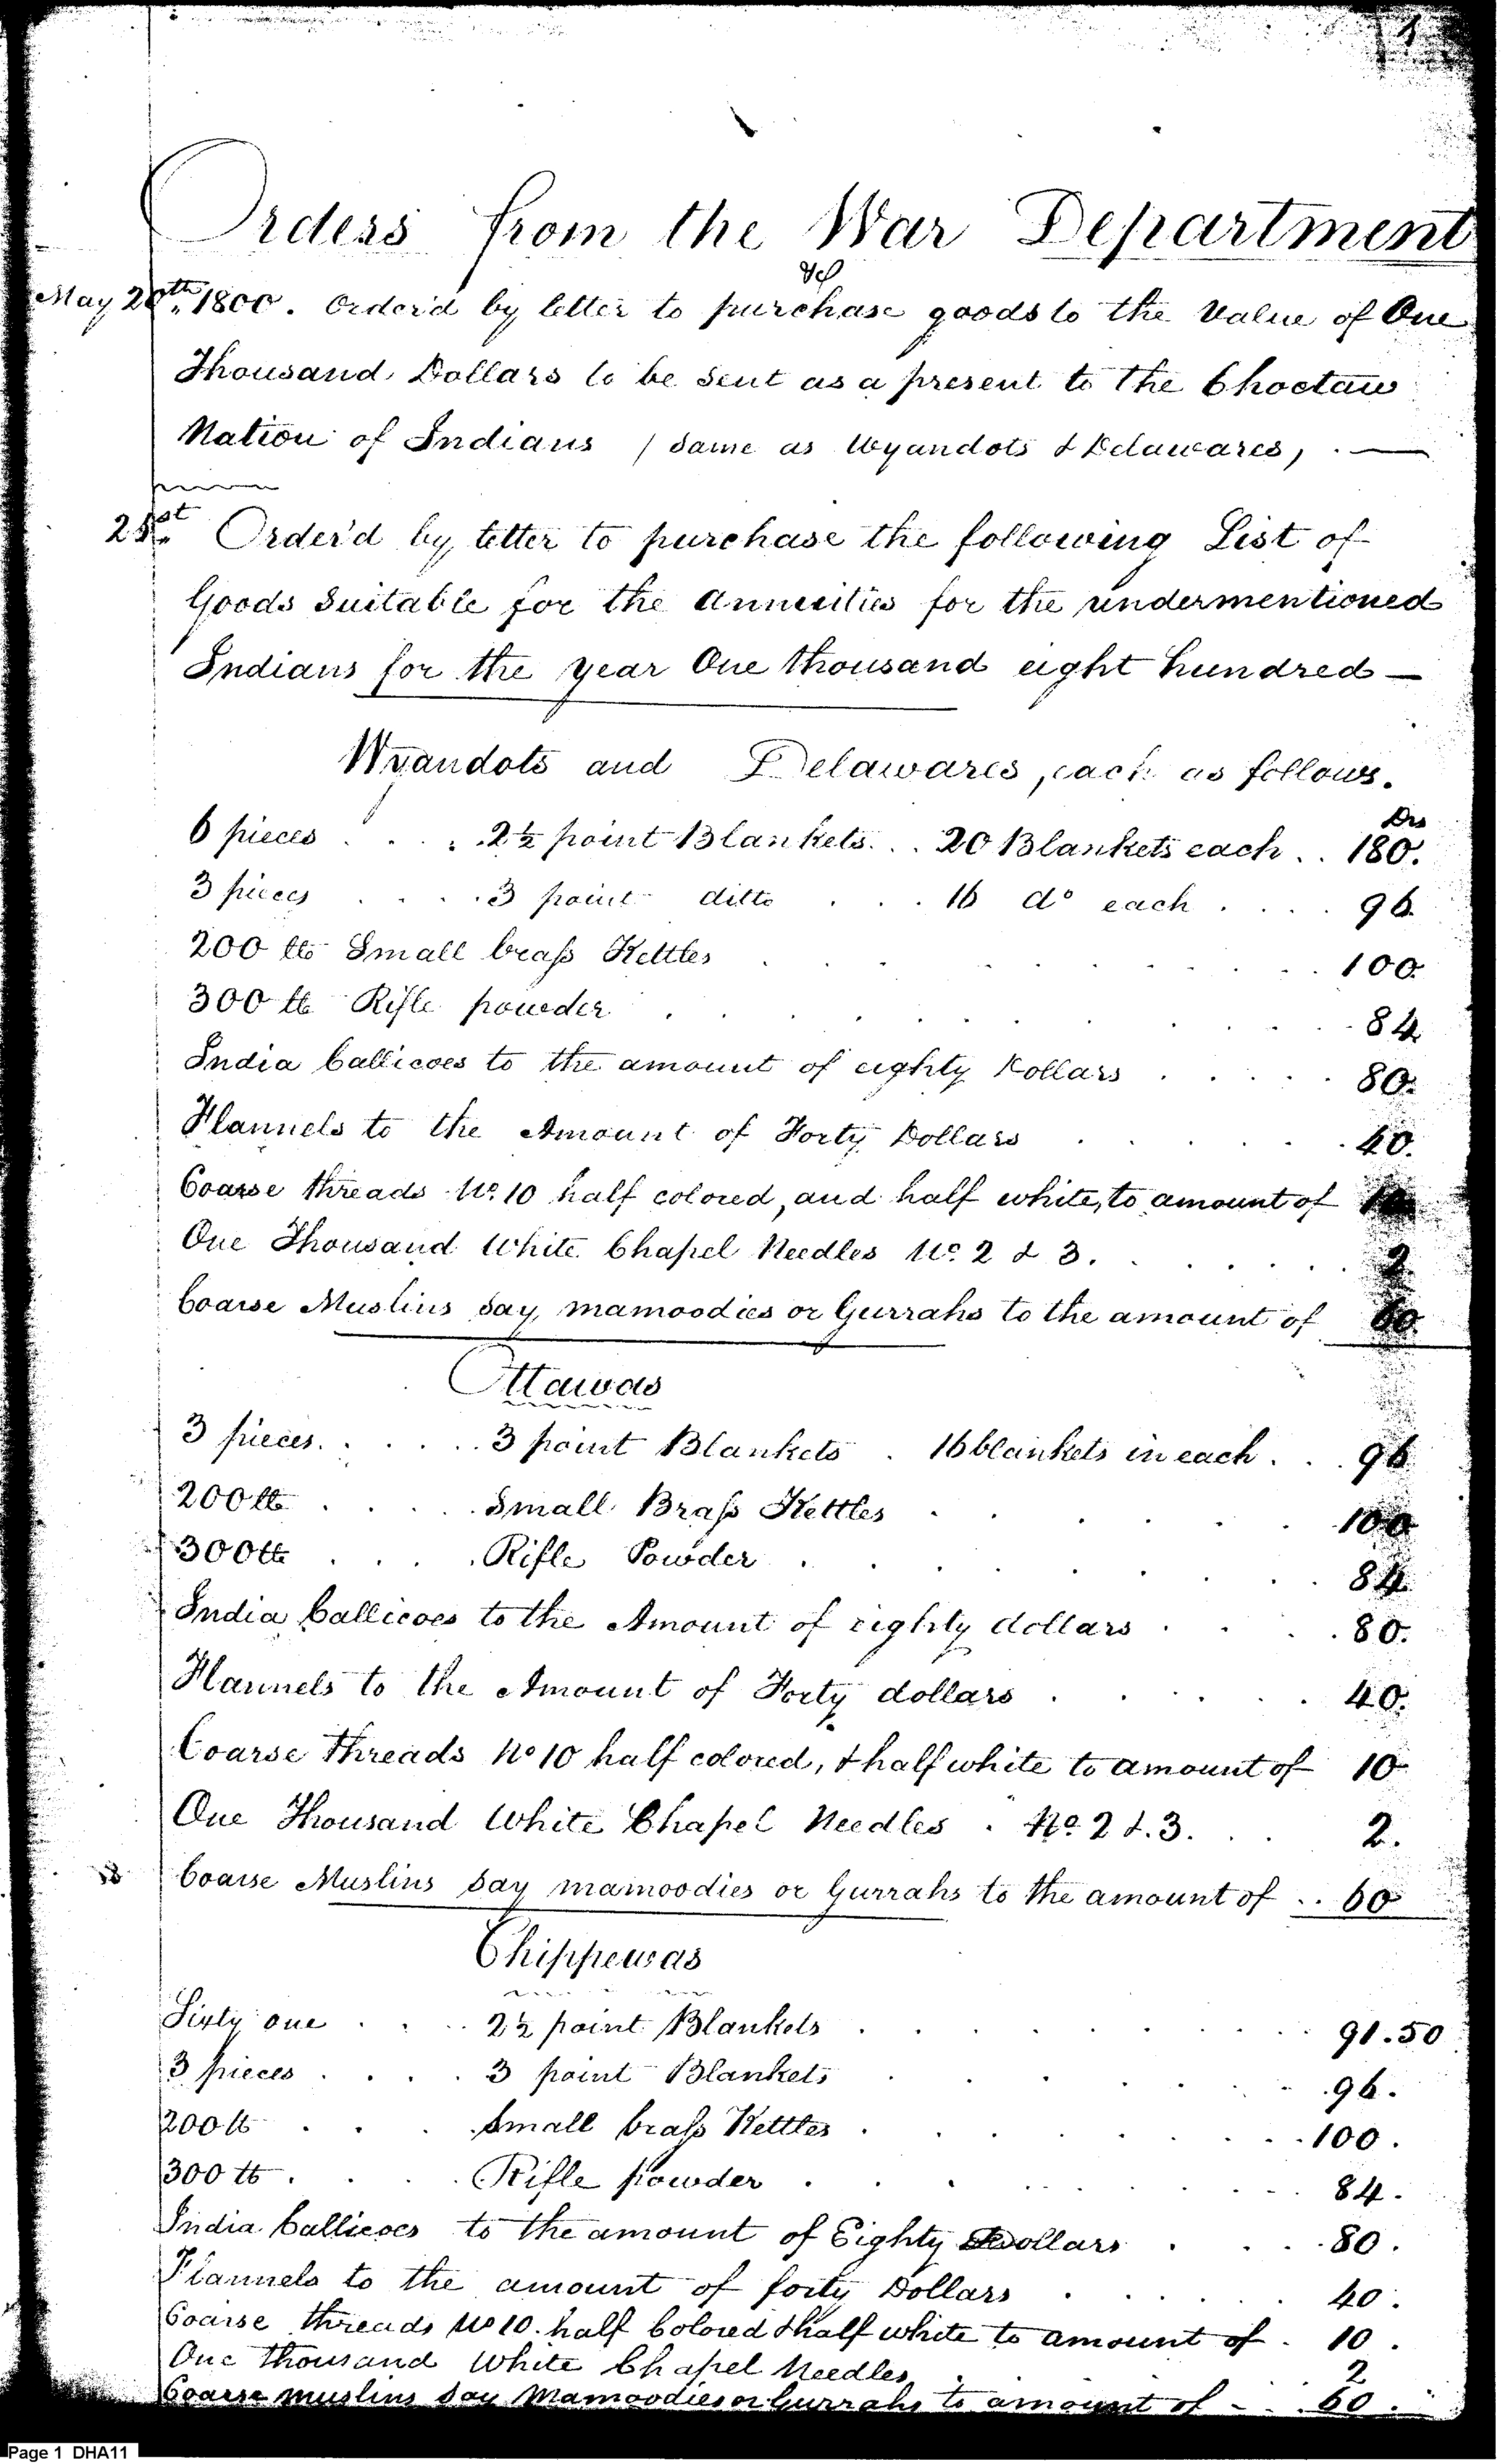 1
Orders from the War Department
&c
May 20th. 1800. Order'd by letter to purchase goods to the Value of One
Thousand Dollars to be Sent as a present to the Choctaw
Nation of Indians / Same as Wyandots & Delawares,
21st. Order'd by letter to purchase the following List of
Goods Suitable for the Annuities for the undermentioned
Indians for the year One thousand eight hundred —
Wyandots and Delawares, each as follows.
Drs
6 pieces . . . . 2½ point Blankets . . . 20 Blankets each . . 180.
3 pieces . . . . 3 point ditto . . . 16 do each . . . . 96.
200 lb Small brass Kettles . . . 100.
300 lb Rifle powder . . . 84
India Callicoes to the amount of eighty Dollars . . . . . 80.
Flannels to the Amount of Forty Dollars . . . . . 40.
Coarse threads No. 10 half colored, and half white, to amount of 10
One Thousand White Chapel Needles No. 2 & 3. . . . 2.
Coarse Muslins Say, mamoodies or Gurrahs to the amount of 60.
Ottawas
3 pieces. . . . . . 3 point Blankets . 16 blankets in each . . . 96
200 lb . . . . Small Brass Kettles . . . 100
300 lb . . . . Rifle Powder . . . 84
India Callicoes to the Amount of eighty dollars . . . . 80.
Flannels to the Amount of Forty dollars . . . . . 40.
Coarse Threads No 10 half colored, & half white to amount of 10
One Thousand White Chapel Needles . No. 2 & 3. . . 2.
Coarse Muslins Say mamoodies or Gurrahs to the amount of . . 60
Chippewas
Sixty one . . . . 2½ point Blankets . . . 91.50
3 pieces . . . . 3 point Blankets . . . 96.
200 lb . . . Small brass Kettles . . . 100.
300 lb . . . . Rifle powder . . . 84.
India Callicoes to the amount of Eighty Dollars . . . . 80.
Flannels to the amount of forty Dollars . . . . . 40.
Coarse threads No 10. half Colored & half white to amount of . 10.
One thousand White Chapel Needles . . 2
Coarse muslins Say Mamoodies or Gurrahs to amount of - . . 60.
Page 1 DHA11